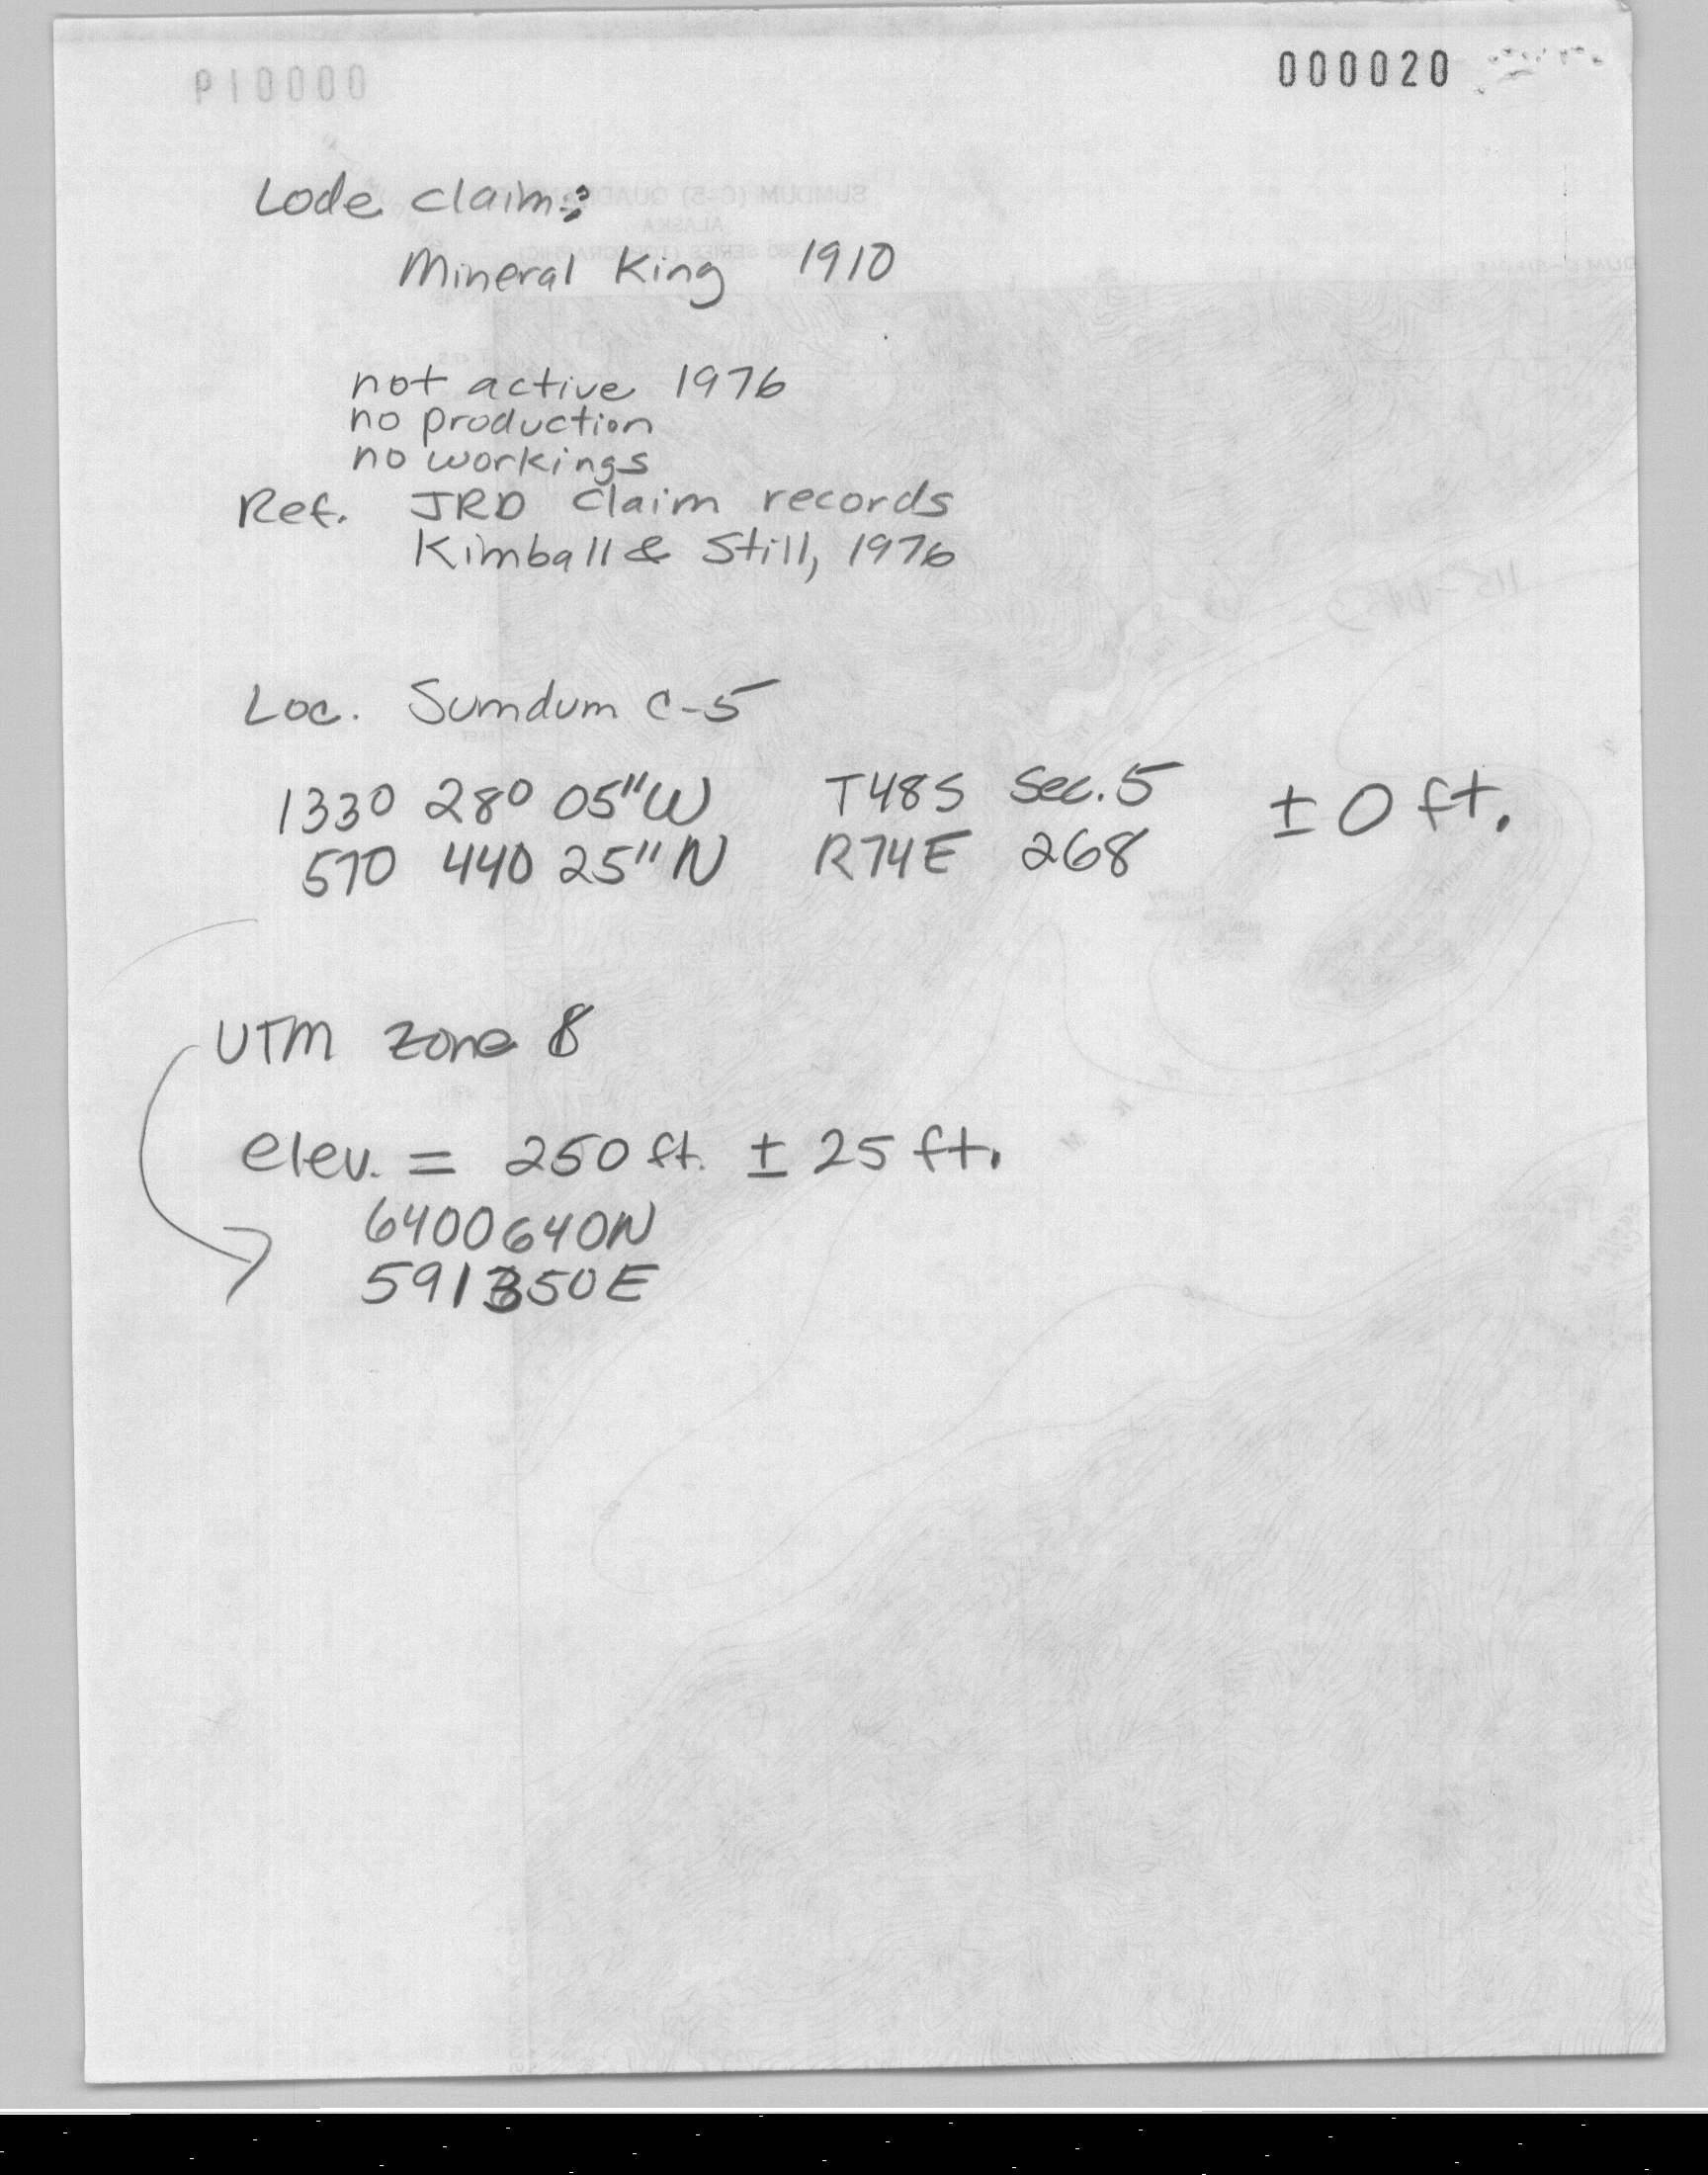 000020
Lode claim:
Mineral King 1910
not active 1976
no production
no workings
Ref. JRD claim records
Kimball & Still, 1976
Loc. Sumdum C-5
133° 28° 05"W T48S Sec. 5 ± 0 ft.
57° 44° 25"N R74E 268
UTM zone 8
elev. = 250 ft. ± 25 ft.
6400640N
591350E